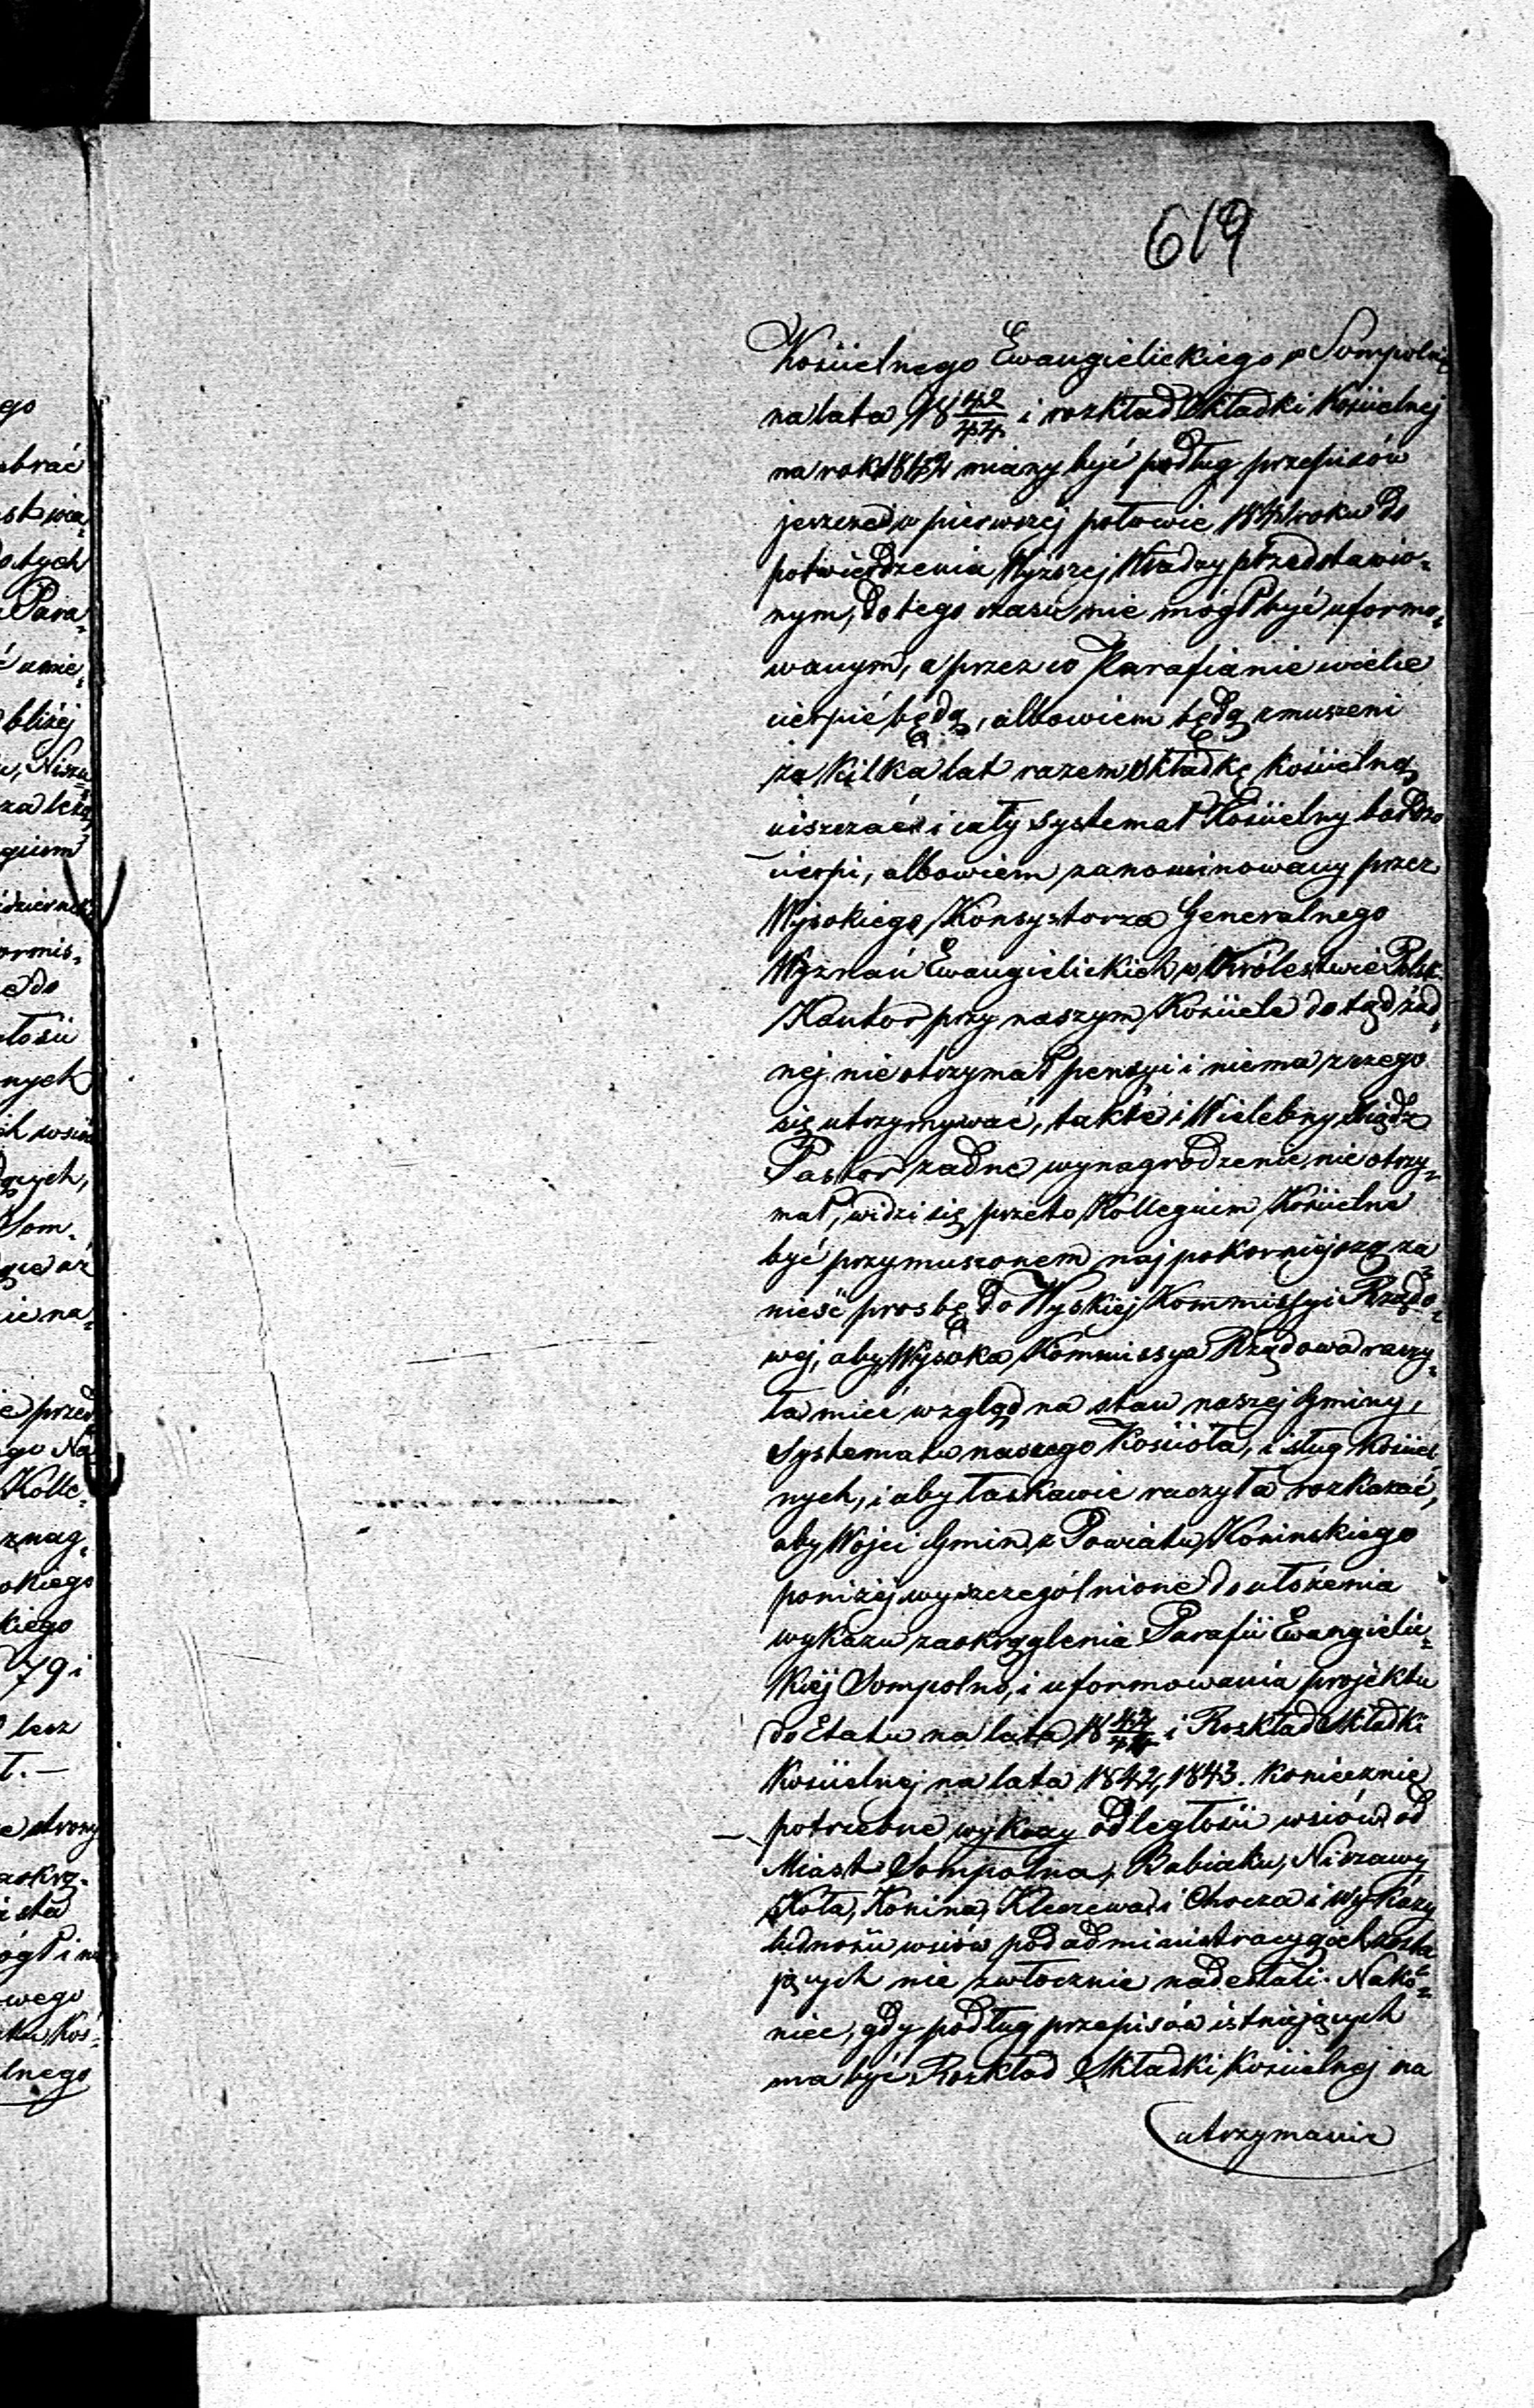 619
Kościelnego Ewangielickiego w Sompolnie
na lata 18 42/44 i rozkład Składki Kościelnej
na rok 1842 miany być podług przepisów
jeszcze w pierwszej połowie 1841 roku do
potwierdzenia Wyższej Władzy przedstawio-
nym, do tego czasu nie mógł być uformo-
wanym, a przez co Parafianie wiele
cierpić będą, albowiem będą zmuszeni
za kilka lat razem Składkę kościelną
uiszczać i cały systemat Kościelny bardzo
cierpi, albowiem zanominowany przez
Wysokiego Konsystorza Generalnego
Wyznań Ewangielickich w Królestwie Polsk.
Kantor przy naszym Kościele dotąd żad-
nej nie otrzymał pensyi i niema z czego
się utrzymywać, także i Wielebny Xiądz
Pastor żadne wynagrodzenie nie otrzy-
mał, widzi się przeto Kollegium Kościelne
być przymuszonem najpokorniejszą za-
nieść prosbę do Wyskiej Kommissyi Rządo-
wej, aby Wysoka Kommissya Rządowa raczy-
ła mieć wzgląd na stan naszej Gminy,
Systematu naszego Kościoła, i sług Kościel-
nych, i aby łaskawie raczyła rozkazać,
aby Wojci Gmin z Powiatu Konińskiego
poniżej wyszczególnione do ułożenia
wykazu zaokrąglenia Parafii Ewangielic-
kiej Sompolno, i uformowania projektu
do Etatu na lata 18 42/44 i Rozkład Składki
Kościelnej na lata 1842, 1843. koniecznie
potrzebne wykazy odległości wsiów od
Miast Sompolna, Babiaku, Niszawy
Koła, Konina, Kleczewa i Chocza i wykazy
ludności wsiów pod administracyą ich zosta-
jących nie zwłocznie nadesłali. Nako-
niec, gdy podług przepisów istniejących
ma być Rozkład Składki Kościelnej na
utrzymanie
ego
ebrać
dotych
Para-
bliżej
za leżą
gium
e do
nych
Som-
ie na-
e przed
Kolle-
znag-
okiego
kiego
79 i
lecz
ł. —
e strony
wego
lnego